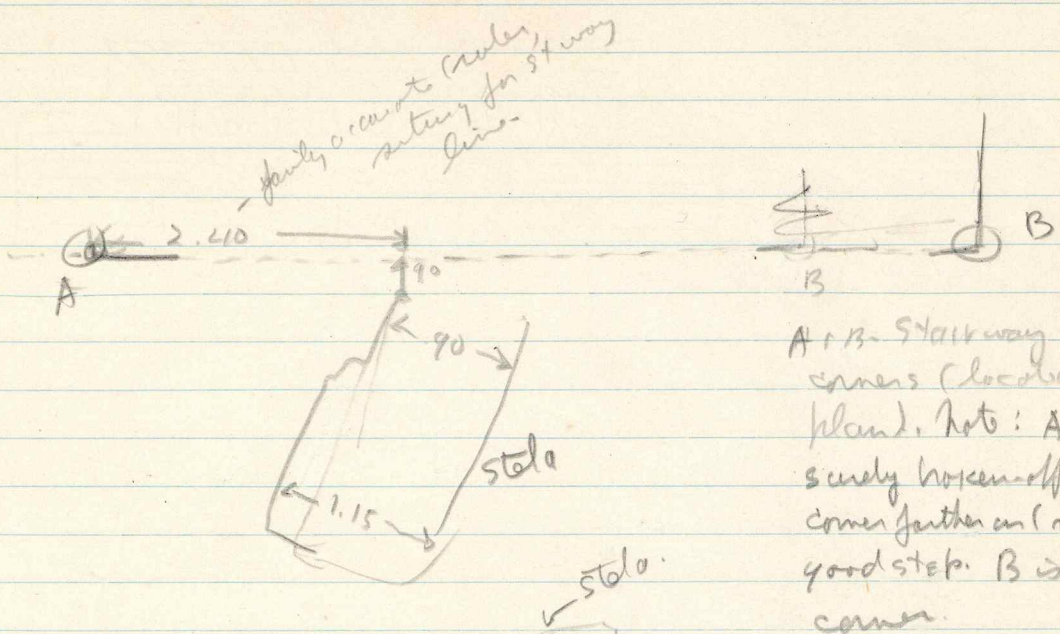 fairly accurate (rules,
for stway
line.
2.210
A
90
B
B
90
stela
1.15
stela.
A & B - Stairway
corners (locat
plan). Note: A
surely broken-off
corner farther on (
good step. B is
corner.